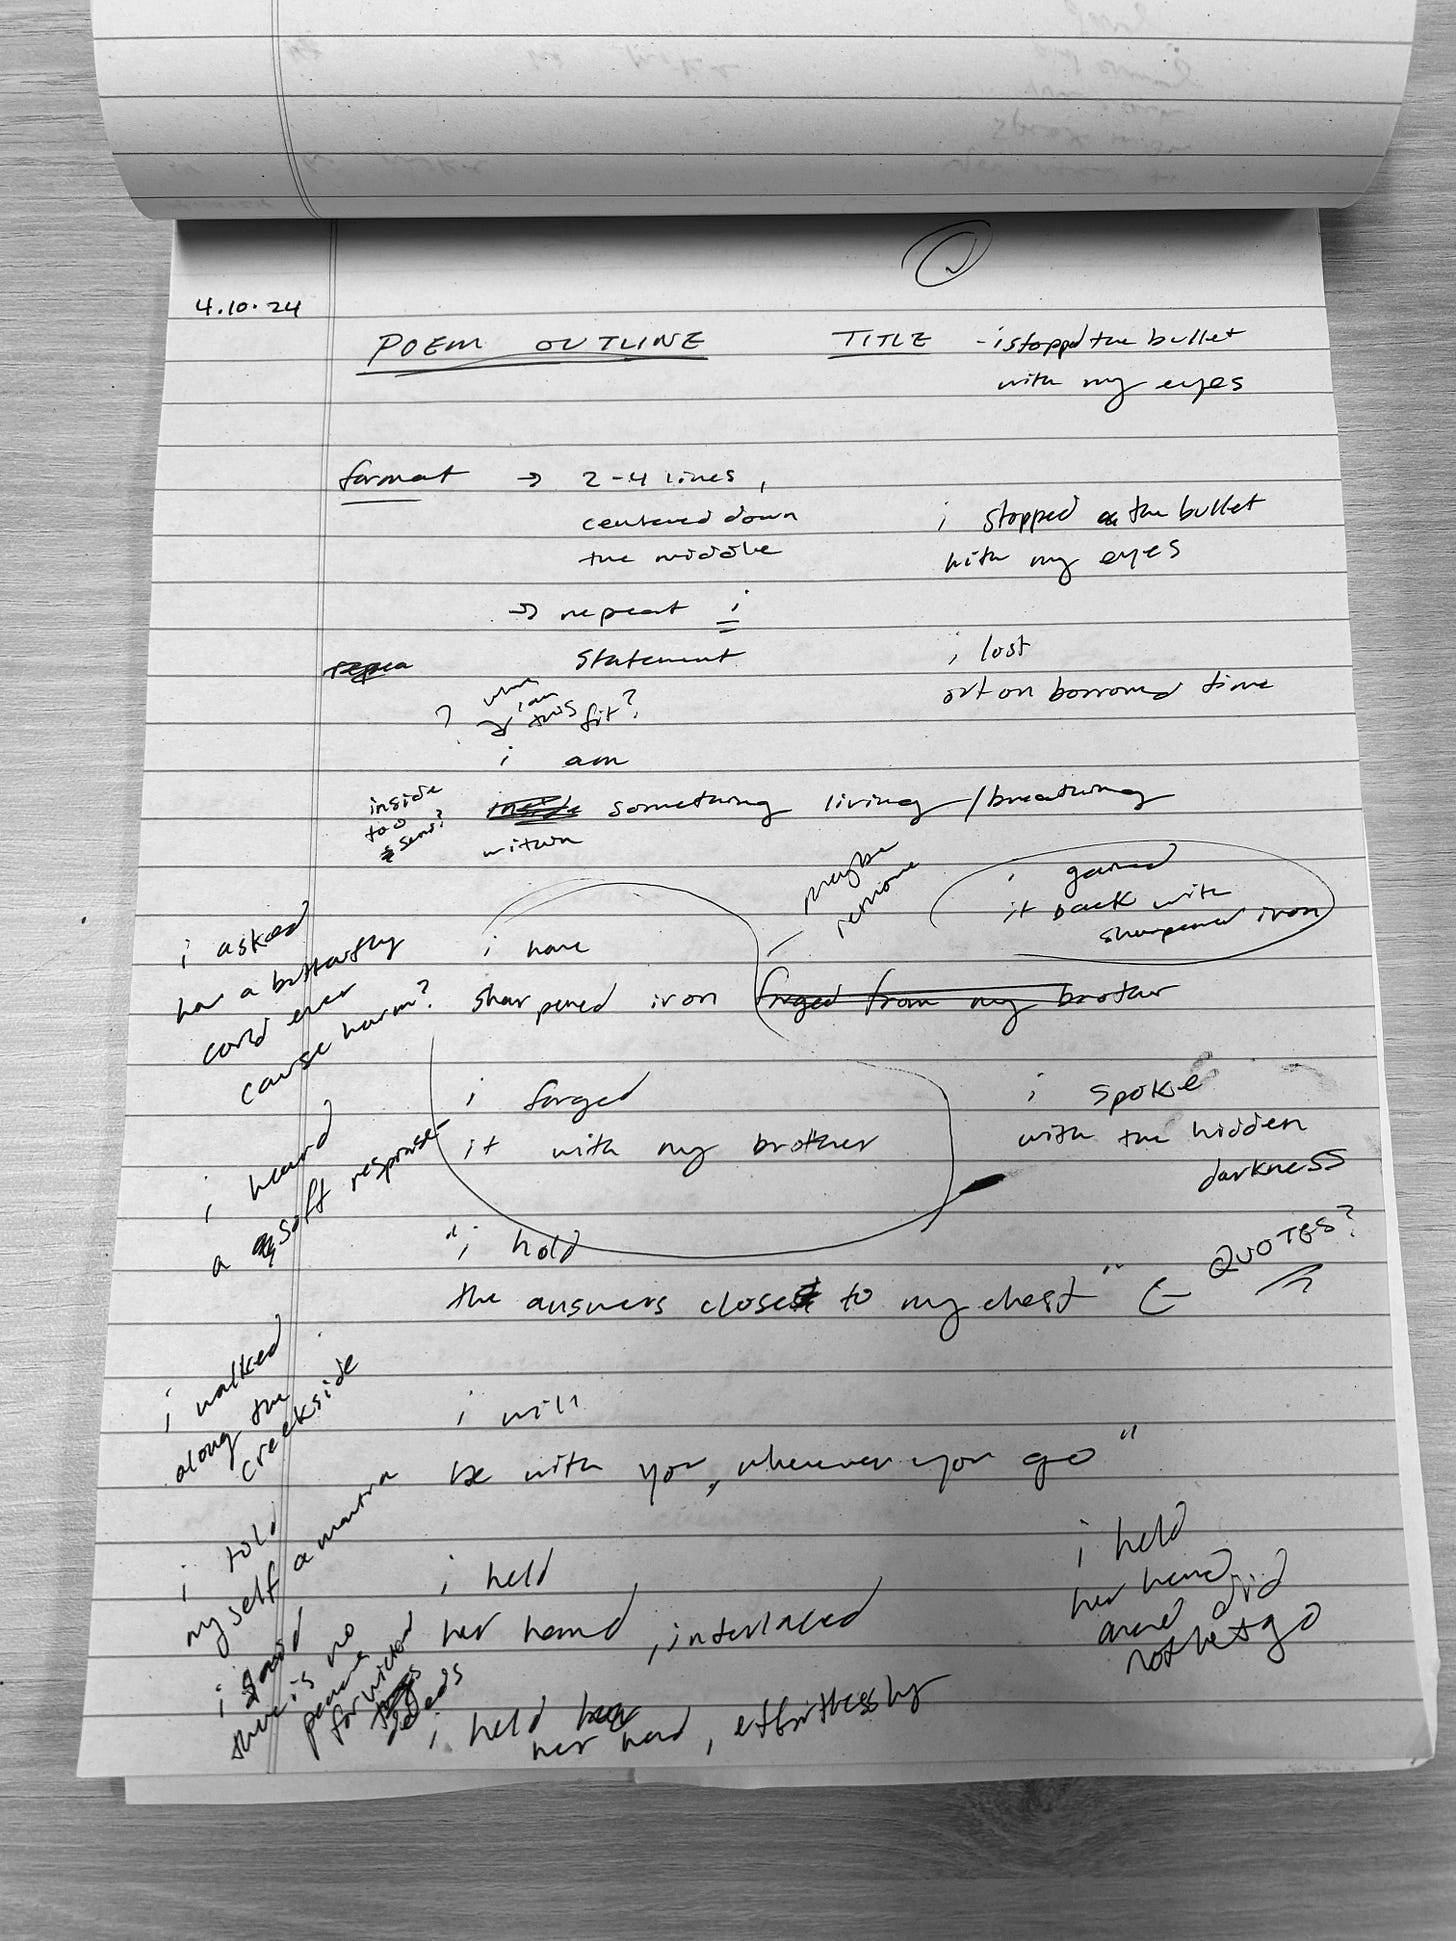 4.10.24
POEM OUTLINE
TITLE - i stopped the bullet
with my eyes
format → 2-4 lines,
centered down
the middle
→ repeat i
statement
i stopped the bullet
with my eyes
i lost
out on borrowed time
? where
i can
this fit?
i am
something living/breathing
within
inside
too
semi?
maybe
remove
i gained
it back with
sharpened iron
i have
sharpened iron forged from my brother
i forged
it with my brother
i asked
how a butterfly
could ever
cause harm?
i heard
a soft response
i spoke
with the hidden
darkness
"i hold
the answers close to my chest" ← QUOTES?
i walked
along the
creekside
i will
be with you, wherever you go"
i told
myself a mantra
i held
her hand, interlaced
i held
her hand
and did
not let go
i found
there is no
peace
for wicked
deeds
i held
her hand, effortlessly